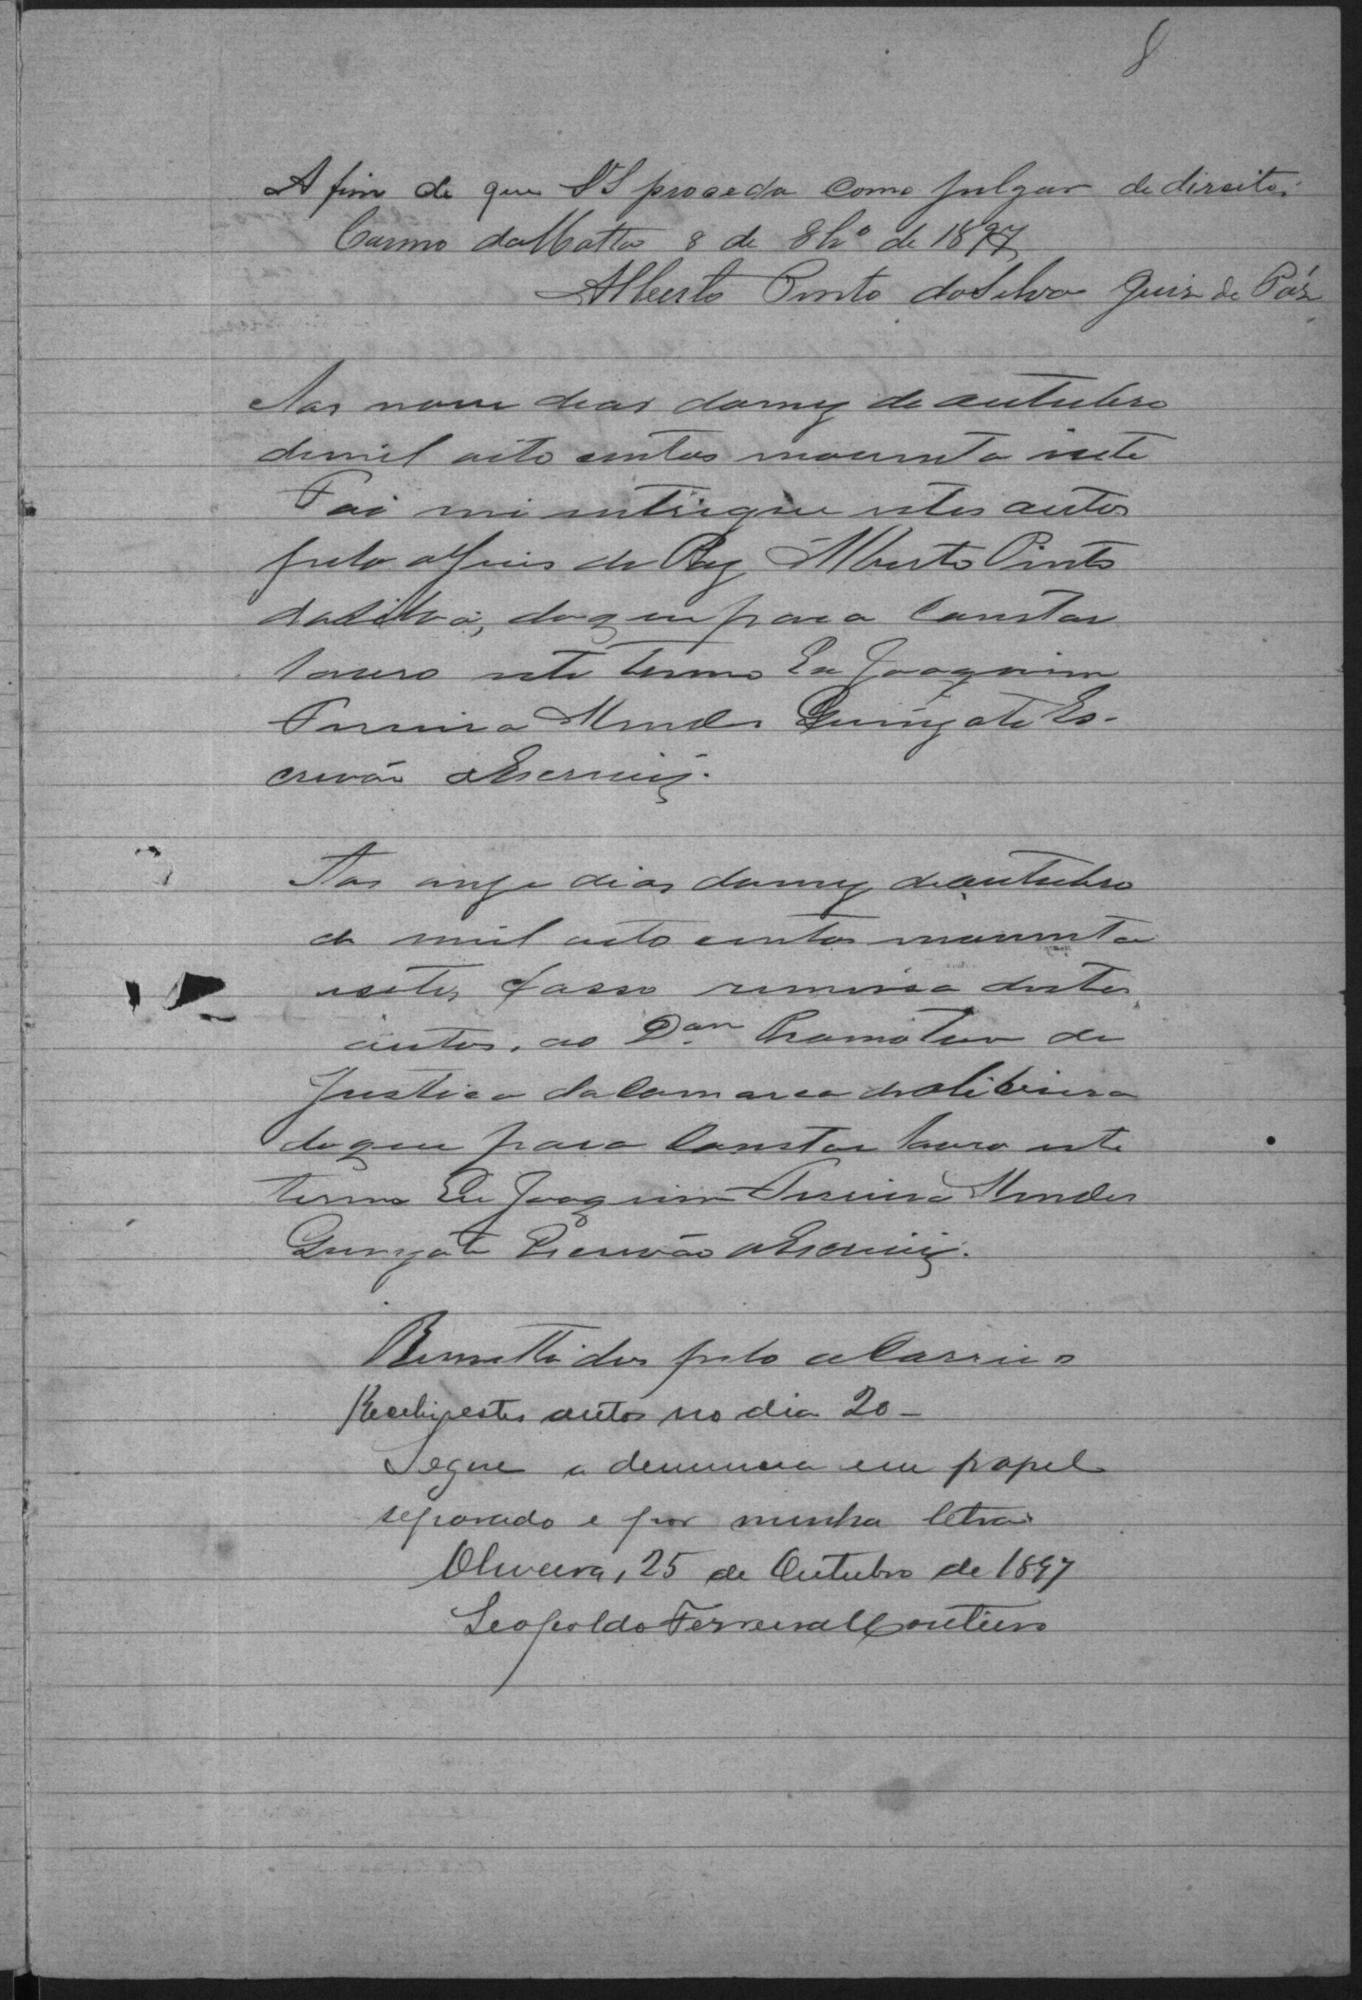 8
A fim de que VS proceda como julgar de direito.
Carmo da Matta 8 de 8bro de 1897
Alberto Pinto da Silva Juiz de Páz
Aos nove dias do mez de outubro
de mil oito centos noventa isete
Foi mi intrigue estes autos
pelo Juis de Paz Alberto Pinto
da Silva, do que para Constar
lavro este termo Eu Joaquim
Ferreira Mendes Es-
crivão o Escrevi.
Aos onze dias do mez de outubro
de mil oito centos noventa
isete, fasso remessa destes
autos, ao Promotor de
Justica da Comarca de Oliveira
do que para Constar lavro este
termo Eu Joaquim Ferreira Mendes
Escrivão o Escrevi.
Remettidos pelo o Correio
Recebi estes autos no dia 20 -
Segue a denuncia em papel
separado e por minha letra
Oliveira, 25 de Outubro de 1897
Leopoldo Ferreira Monteiro